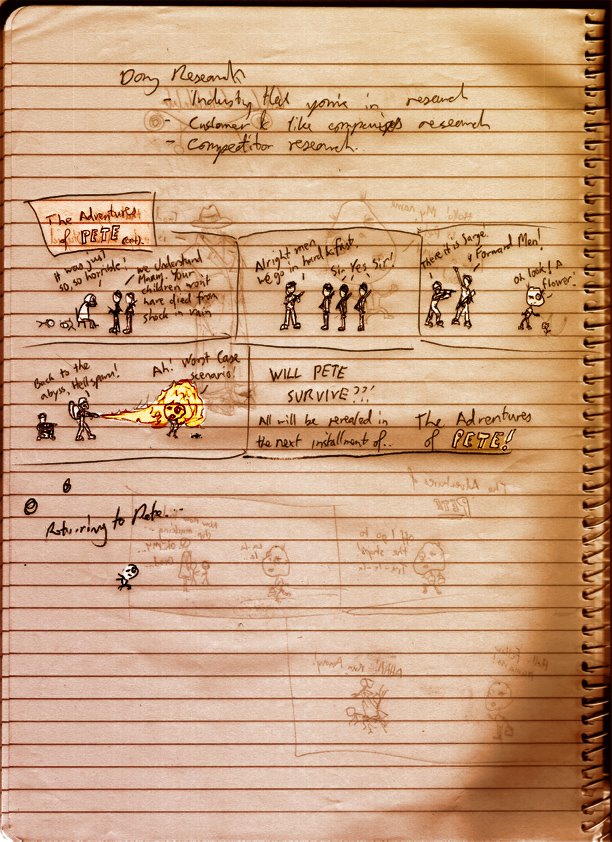 Doing Research
- Industry that you're in research
- Customer & like companies research
- Competitor research.
The Adventures
of PETE (cont).
It was just
so, so horrible!
We understand
Mam, Your
children won't
have died from
shock in vain
Alright men,
we go in hard & fast
Sir, Yes Sir!
There it is Sarge.
Forward Men!
Oh look! A
flower!
Back to the
abyss, Hellspawn!
Ah! Worst Case
scenario!
WILL PETE
SURVIVE???
All will be revealed in
the next installment of..
The Adventures
of PETE!
Returning to Pete...
The Adventures of
PETE